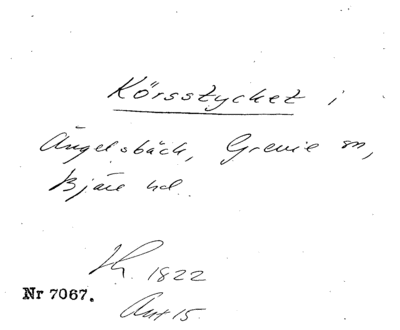 Körsstycket i
Ängelsbäck, Grevie sn,
Bjäre hd.
Th. 1822
Nr 7067.
Ant 15.